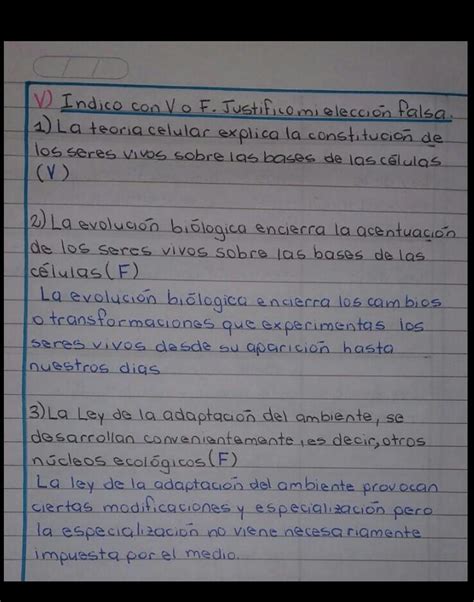 V) Indico con V o F. Justifico mi elección falsa.
1) La teoría celular explica la constitución de
los seres vivos sobre las bases de las células
(V)
2) La evolución biólogica encierra la acentuación
de los seres vivos sobre las bases de las
células (F)
La evolución biólogica encierra los cambios
o transformaciones que experimentas los
seres vivos desde su aparición hasta
nuestros dias
3) La Ley de la adaptación del ambiente, se
desarrollan convenientemente, es decir, otros
núcleos ecológicos (F)
La ley de la adaptación del ambiente provocan
ciertas modificaciones y especialización pero
la especialización no viene necesariamente
impuesta por el medio.